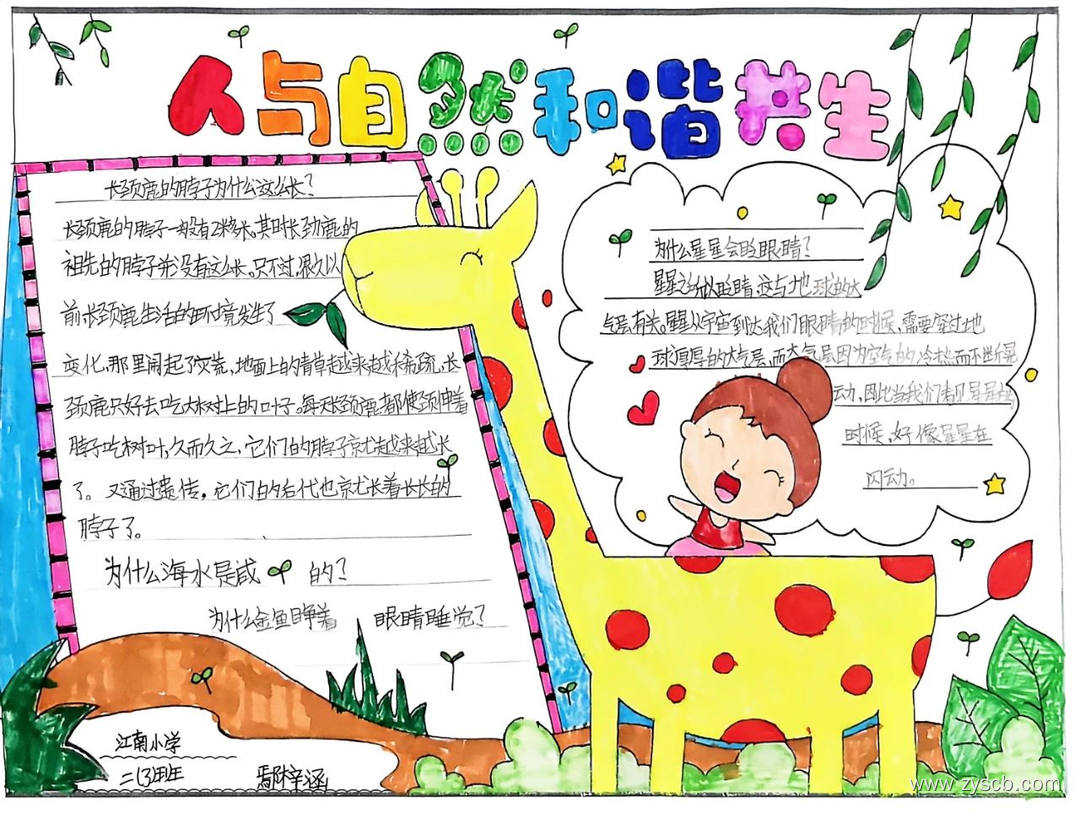 人与自然和谐共生
长颈鹿的脖子为什么这么长?
长颈鹿的脖子一般有2米长。其时长劲鹿的
祖先的脖子并没有这么长。只不过,很久以
前长颈鹿生活的环境发生了
变化,那里闹起了灾荒,地面上的青草越来越来越稀疏,长
颈鹿只好去吃大树上的叶子。每天长颈鹿都使颈伸着
脖子吃树叶,久而久之,它们的脖子京尤越来越长
了。又通过遗传,它们的后代也京尤长着长长的
脖子了。
为什么海水是咸的?
为什么金鱼睁着眼睛睡觉?
为什么星星会眨眼睛?
星星之所以眨睛,这与地球的大
气层有关。星星从宇宙到达我们眼睛的时候,需要穿过地
球厚厚的大气层,而大气层因为空气的冷热而不断晃
动,因此当我们看见星星的
时候,好像星星在
闪动。
江南小学
二(3)班
梓涵
www.zyscb.com